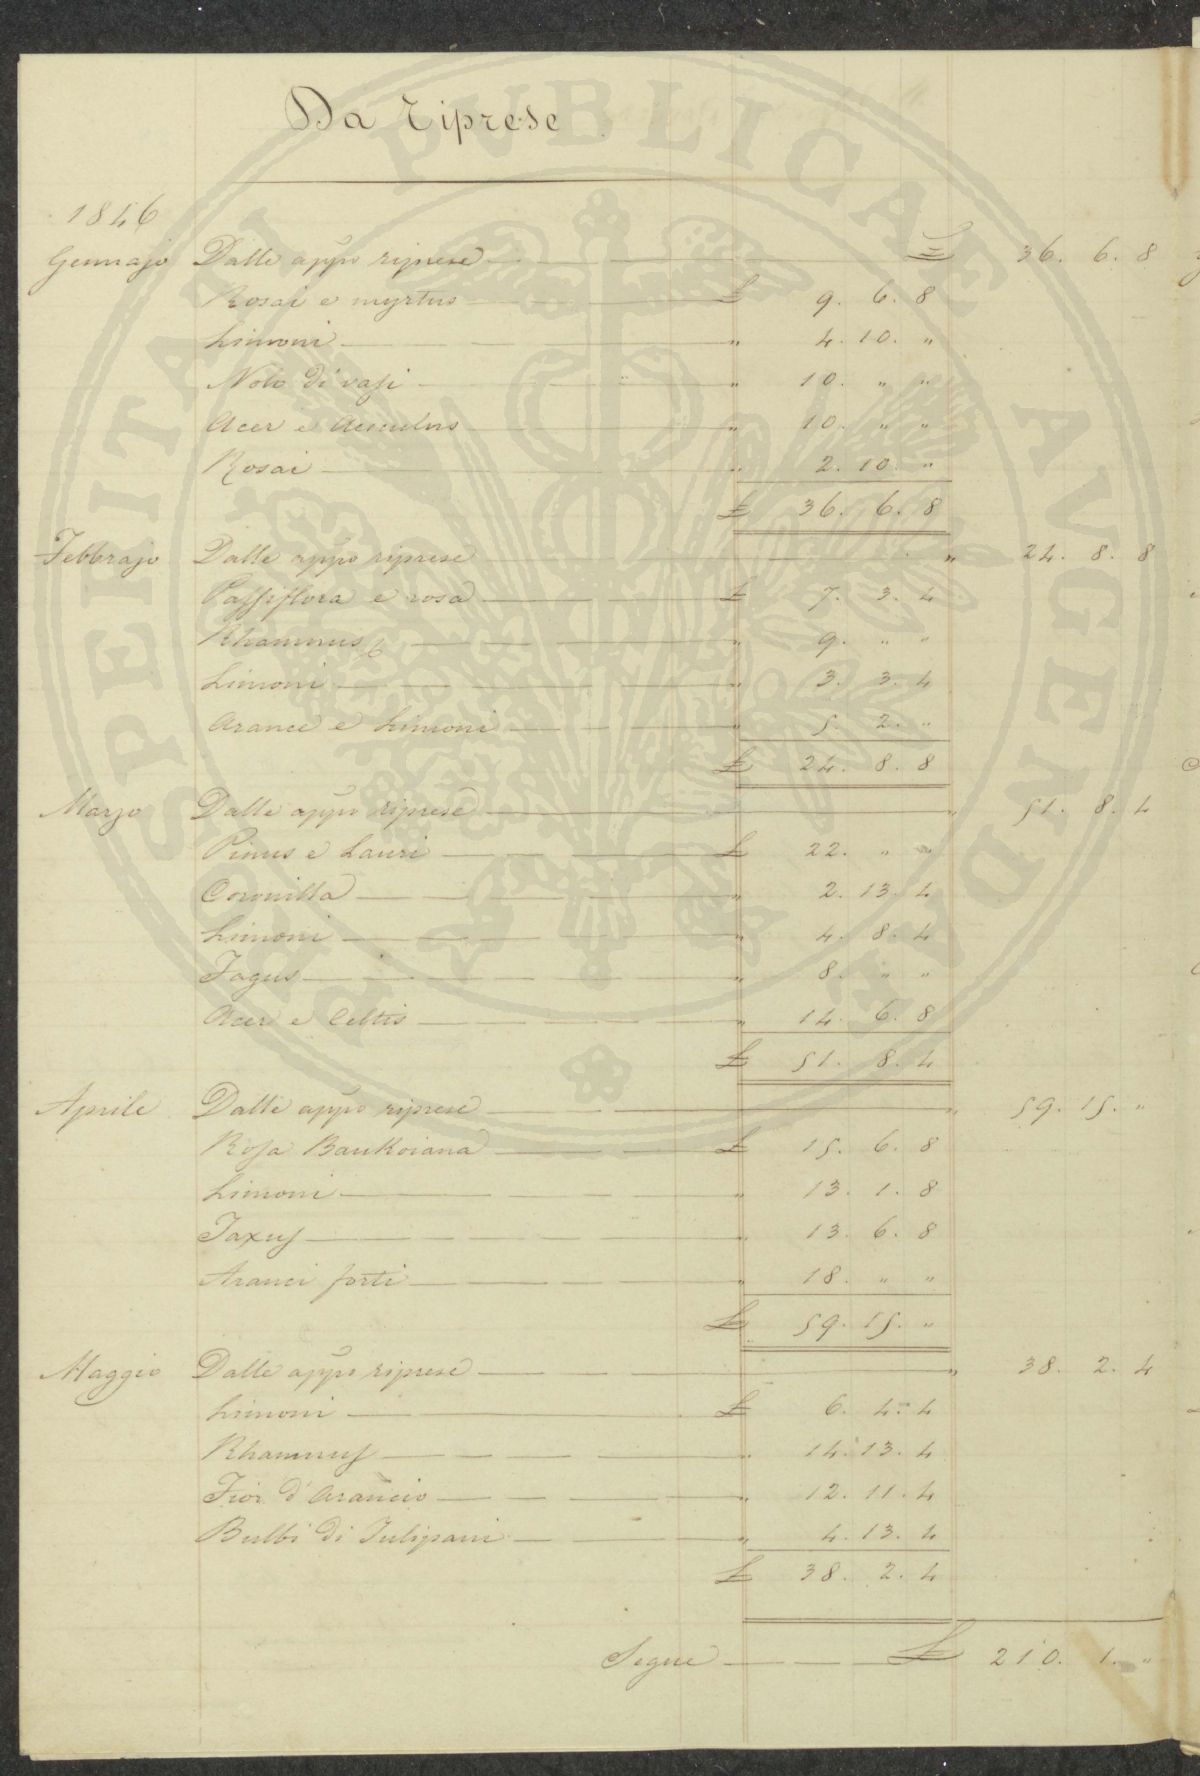 Da riprese
1846
Gennajo Dalle appo riprese £ 36. 6. 8
Rosai e myrtus £ 9. 6. 8
Limoni " 4. 10. "
Nolo di vasi " 10. " "
Acer e Aesculus " 10. " "
Rosai " 2. 10. "
£ 36. 6. 8
Febbrajo Dalle appo riprese " 24. 8. 8
Passiflora e rosa £ 7. 3. 4
Rhamnus " 9. " "
Limoni " 3. 3. 4
Arance e Limoni " 5. 2. "
£ 24. 8. 8
Marzo Dalle appo riprese " 51. 8. 4
Pinus e Lauri £ 22. " "
Coronilla " 2. 13. 4
Limoni " 4. 8. 4
Fagus " 8. " "
Acer e Celtis " 14. 6. 8
£ 51. 8. 4
Aprile Dalle appo riprese " 59. 15. "
Rosa Banksiana £ 15. 6. 8
Limoni " 13. 1. 8
Taxus " 13. 6. 8
Aranci forti " 18. " "
£ 59. 15. "
Maggio Dalle appo riprese " 38. 2. 4
Limoni £ 6. 4. 4
Rhamnus " 14. 13. 4
Fior d'Arancio " 12. 11. 4
Bulbi di Tulipani " 4. 13. 4
£ 38. 2. 4
Segue £ 210. 1. "
PROSPERITATI PUBLICAE AVGENDAE